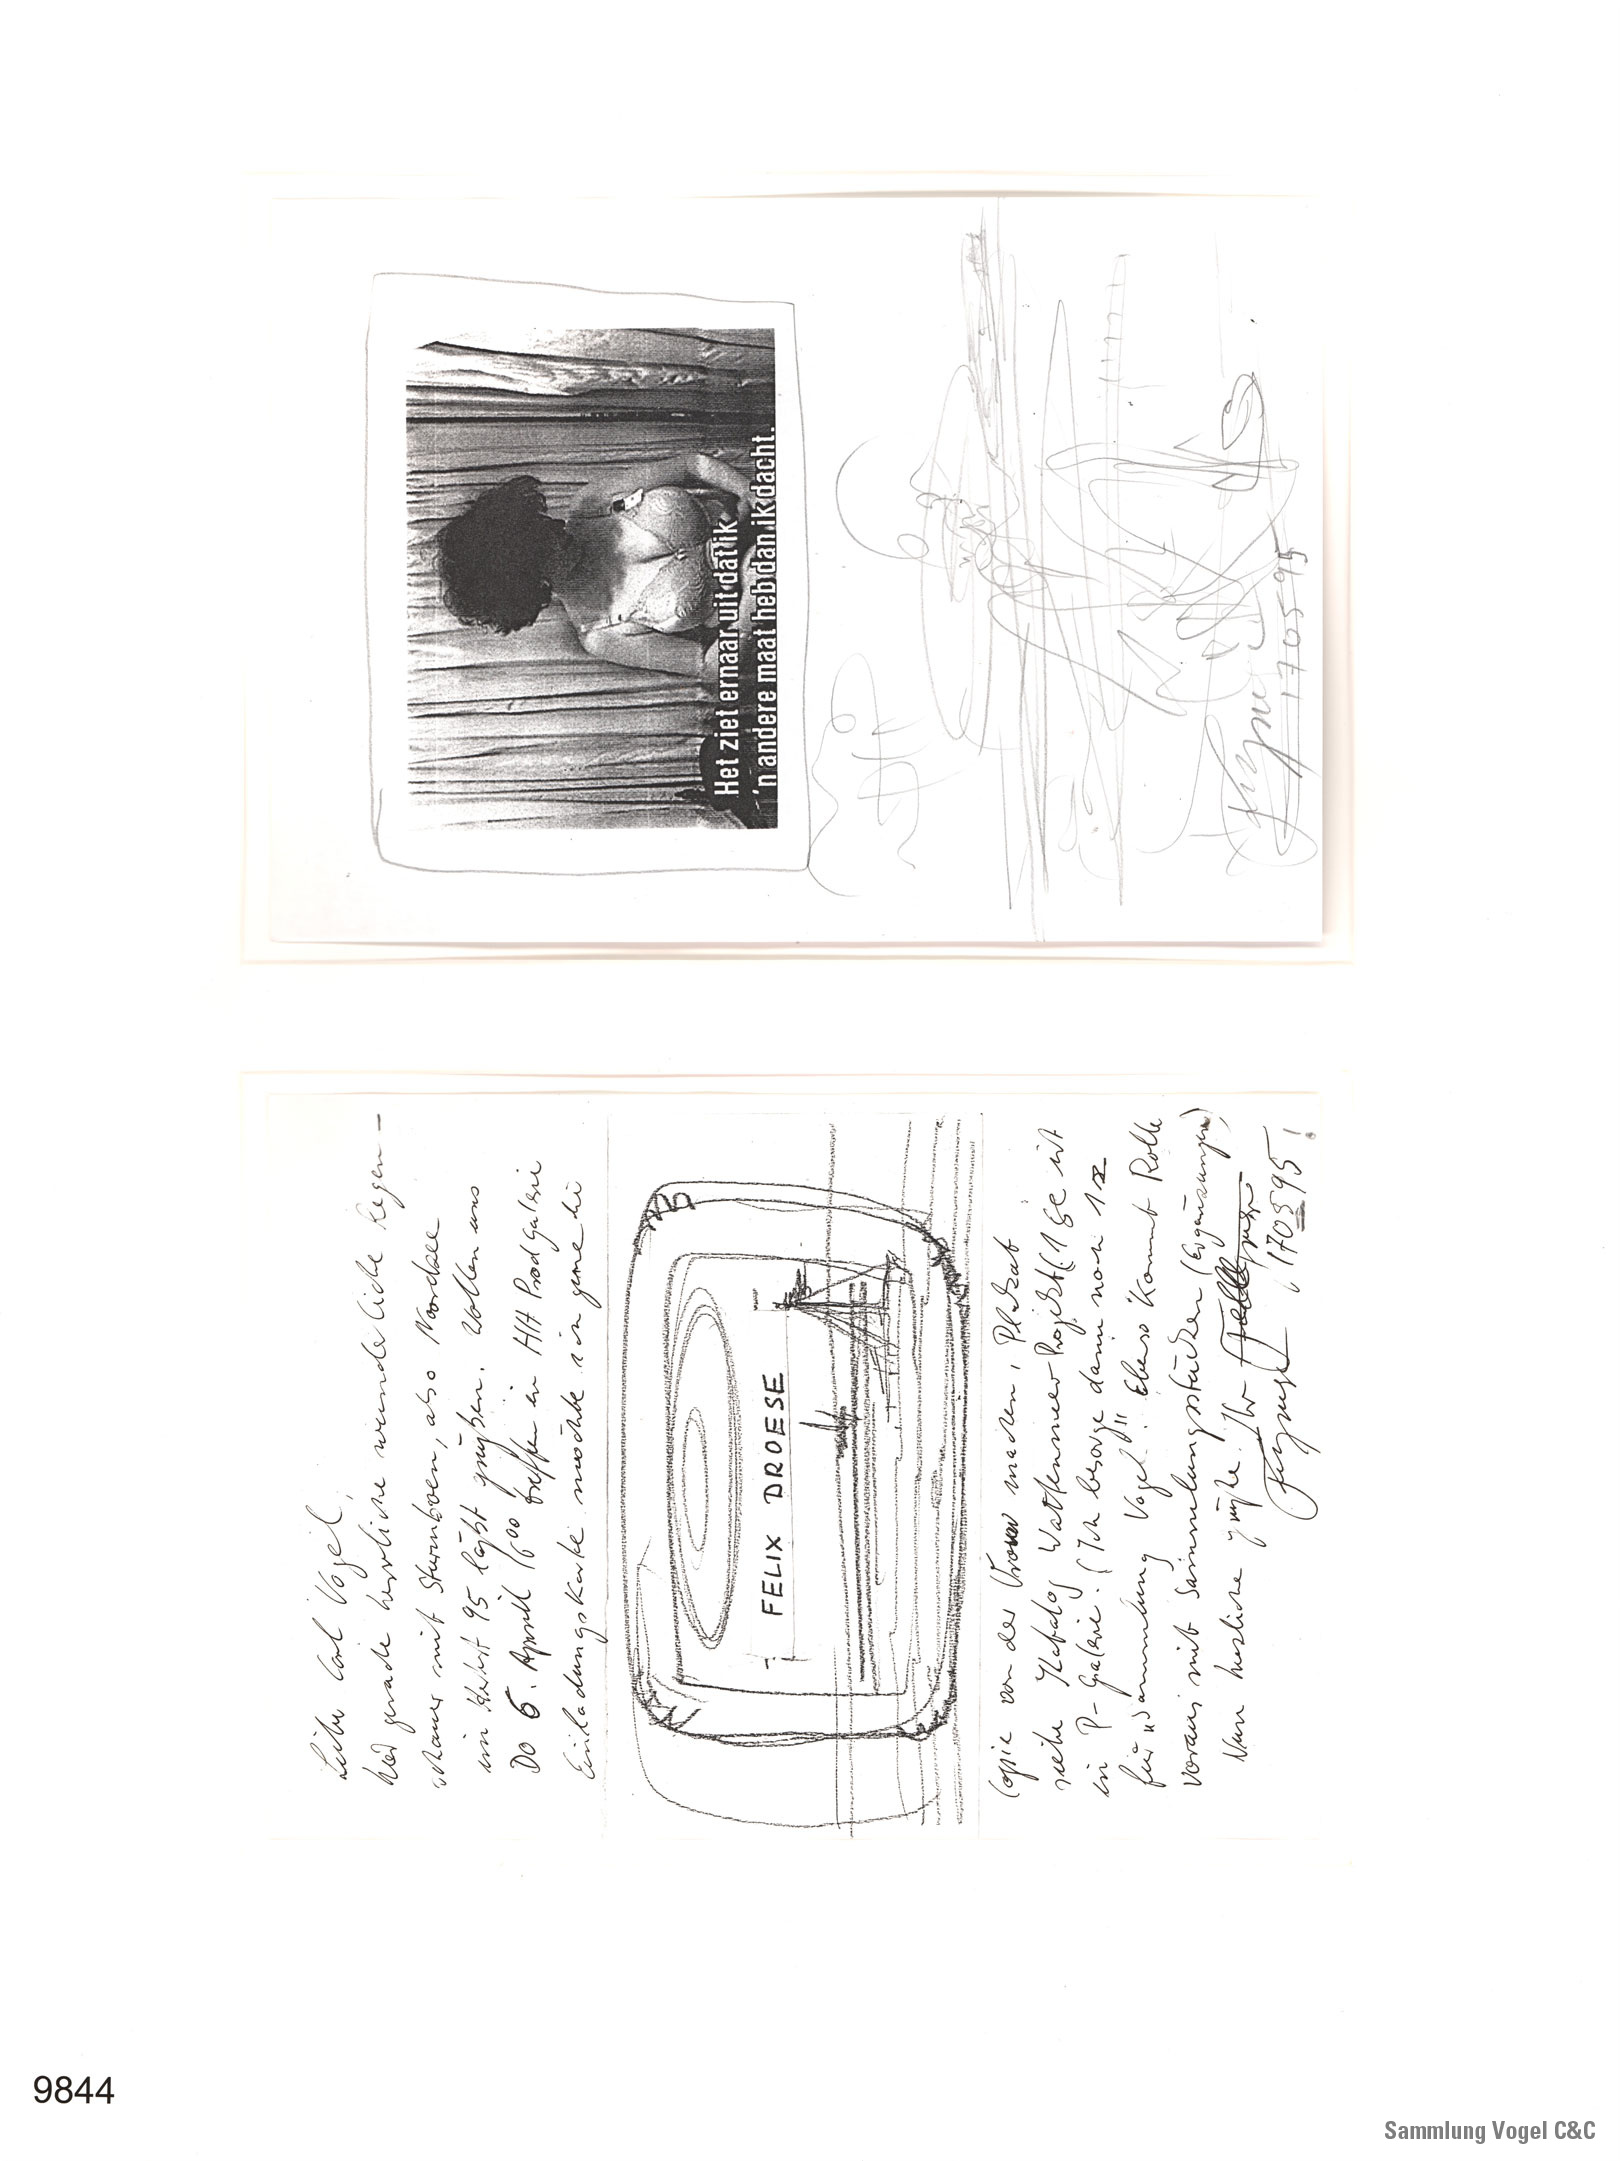 Het ziet ernaar uit dat ik
'n andere maat heb dan ik dacht.
170595
Lieber Carl Vogel,
hier gerade herrliche wunderliche Regen-
schauer mit Sturmböen, also Nordsee
im Herbst 95 läßt grüßen. Wollen uns
Do 6. April 16 00 treffen in HH Prodgalerie
Einladungskarte möchte ich gerne die
FELIX DROESE
Copie von der machen, Plakat
siehe Katalog Wattenmeer-Projekt (1 Ge ist
in P-Galerie. (Ich besorge dann noch 1x
für "Sammlung Vogel". Ebenso kommt Rolle
voraus mit Sammlungsstücken (Ergänzungen)
Nun herzliche Grüße. Ihr
170395!
9844
Sammlung Vogel C&C